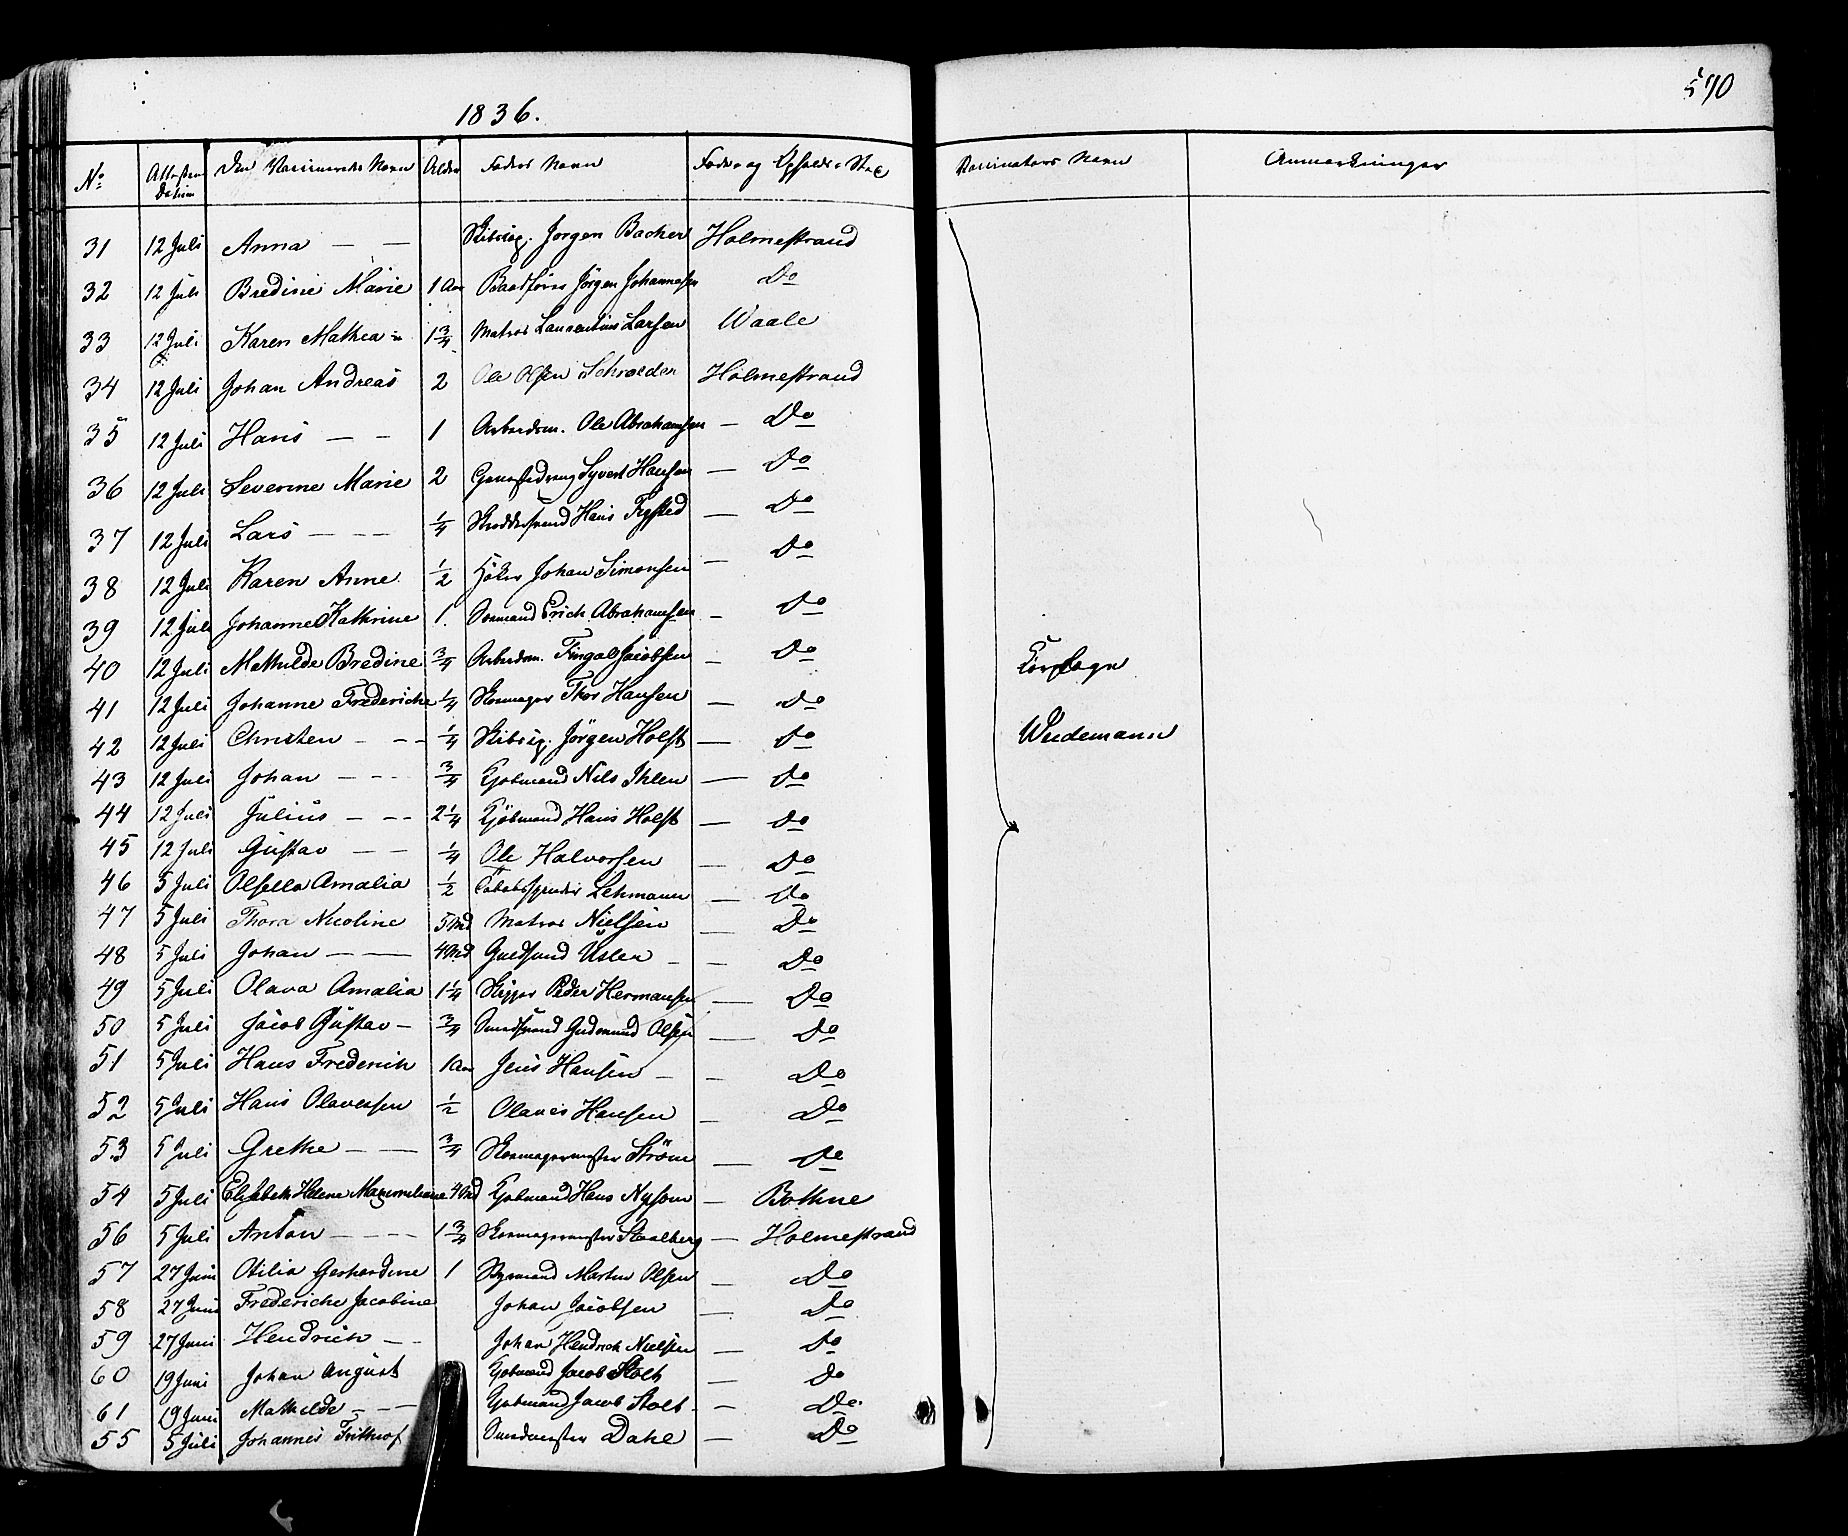 570
1836.
No Attesten Datum Den Vaccineredes Navn Alder Faders Navn Føde- og Opholds-Sted Vaccinators Navn Anmærkninger
31 12 Juli Anna — — Skibscp. Jørgen Backer Holmestrand
32 12 Juli Bredine Marie 1 Aar Baadsfører Jörgen Johannesen Do
33 12 Juli Karen Mathea 1 3/4 Matros Laurentius Larsen Waale
34 12 Juli Johan Andreas 2 Ole Olsen Schrøeder Holmestrand
35 12 Juli Hans — — 1 Arbeidsm. Ole Abrahamsen — Do
36 12 Juli Severine Marie 2 Syvert Hansen — Do
37 12 Juli Lars — — — 1/4 Hans — Do
38 12 Juli Karen Anne 1/2 Höker Johan Simonsen — Do
39 12 Juli Johanne Kathrine 1. Erich Abrahamsen — Do
40 12 Juli Mathilde Bredine 3/4 Arbeidsm. Fingal Jacobsen — Do
41 12 Juli Johanne Frederiche 1/4 Skomager Thor Hansen — Do
42 12 Juli Christen — — — 1/4 Skibscp. Jörgen Holst — Do Wiedemann
43 12 Juli Johan — — — 3/4 Kjøbmand Nils Ihlen — Do
44 12 Juli Julius — — — 2 1/4 Kjöbmand Hans Holst — Do
45 12 Juli Gustav — — 1/4 Ole Halvorsen — Do
46 5 Juli Olsella Amalia 1/2 Lehmann — Do
47 5 Juli Thora Nicoline 5 Md Matros Nielsen — Do
48 5 Juli Johan — — 4 Md — — Do
49 5 Juli Olava Amalia 1 1/4 Skipper Peder Hermansen — Do
50 5 Juli Jacob Gustav — 3/4 Gudmund Olsen — Do
51 5 Juli Hans Frederich 1 Aar Jens Hansen — — Do
52 5 Juli Hans Olavesen 1/2 Olaves Hansen — Do
53 5 Juli Grethe — — 3/4 Skomagermester Ström — Do
54 5 Juli Elisabeth Helene Maximeliane 4 Md Kjøbmand Hans — Bothne
56 5 Juli Anton — — — — 1 3/4 Skomagermester Staalberg — Holmestrand
57 27 Juni Otilia Gerhardine 1 Styrmand Martin Olsen — Do
58 27 Juni Frederiche Jacobine Johan Jacobsen — Do
59 27 Juni Hendrich — — Johan Hendrich Nielsen — Do
60 19 Juni Johan August Kjøbmand Jacob Stolt — Do
61 19 Juni Mathilde — — — Kjøbmand Jacob Stolt — Do.
55 5 Juli Johannes Frithiof Dahl — Do